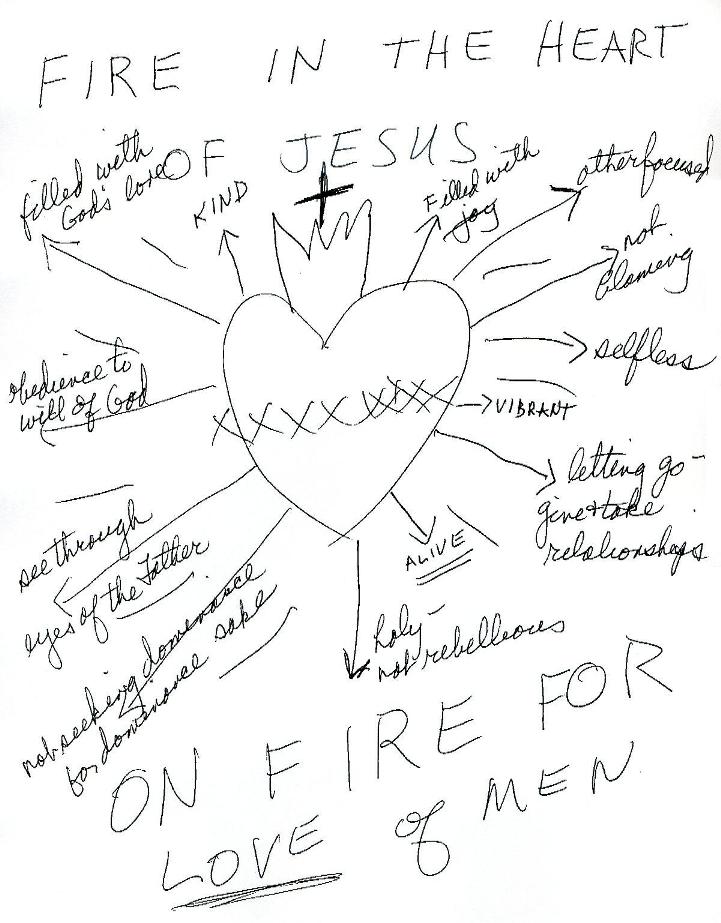 FIRE IN THE HEART
OF JESUS
filled with
God's love
KIND
Filled with
joy
other focused
not
blaming
selfless
obedience to
will of God
VIBRANT
letting go -
give & take
relationships
see through
eyes of the Father
ALIVE
holy -
not rebellious
not seeking dominance
for dominance sake
ON FIRE FOR
LOVE of MEN